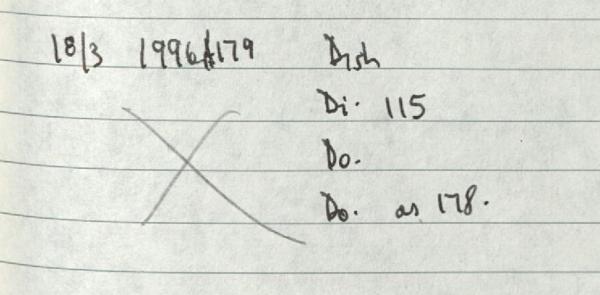 18/3 1996/179 Dish
Di. 115
Do.
Do. as 178.